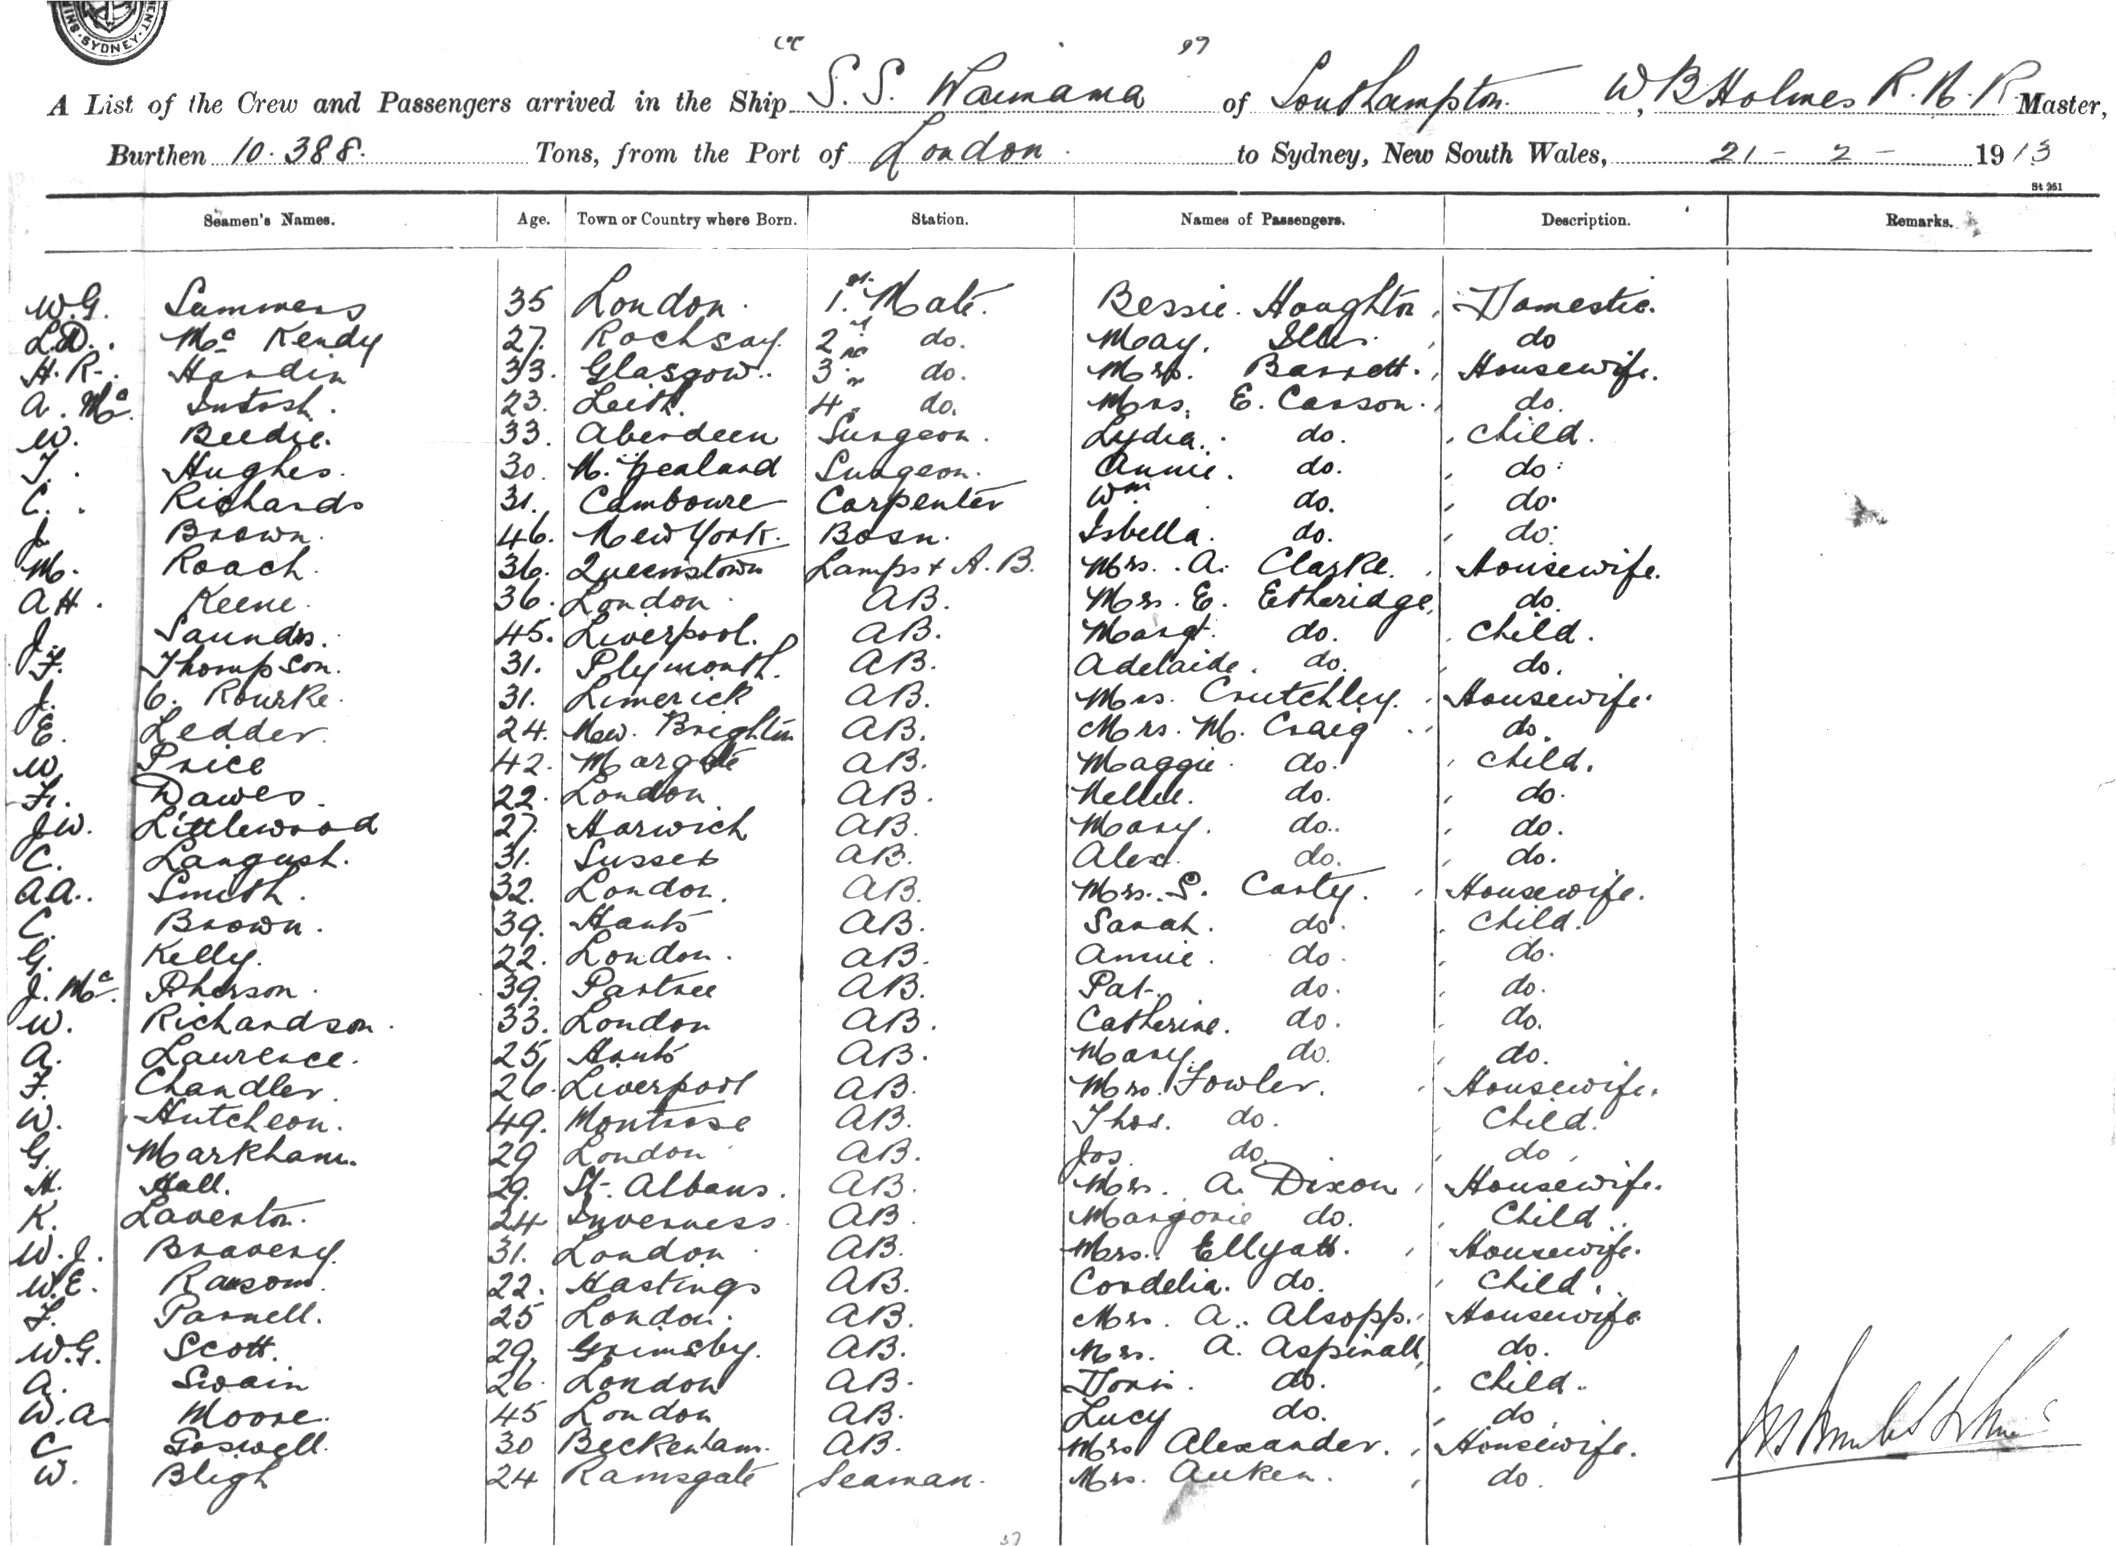 SYDNEY
A List of the Crew and Passengers arrived in the Ship "S.S. Waimana" of Southampton, W. B Holmes R.N.R Master,
Burthen 10.388. Tons, from the Port of London to Sydney, New South Wales, 21-2-1913
St 351
Seamen's Names. Age. Town or Country where Born. Station. Names of Passengers. Description. Remarks.
W.G. Summers 35 London. 1st Mate. Bessie Houghton, Domestic.
L.D. Mc Kendy 27. Rochsay. 2nd do. May. Ellis. do
H.R. Hardin 33. Glasgow. 3 do. Mrs. Barrett. Housewife.
A. Mc Intosh. 23. Leith. 4 do. Mrs. E. Carson. do.
W. Beedie. 33. Aberdeen Surgeon. Lydia. do. Child.
T. Hughes. 30. N. Zealand Surgeon. Annie. do. do.
C. Richards 31. Camboure Carpenter Wm. do. do.
J. Brown. 46. New York. Bosn. Isbella. do. do.
M. Roach. 36. Queenstown Lamps & A.B. Mrs. A. Clarke. Housewife.
A H. Keene. 36. London. AB. Mrs. E. Etheridge, do.
J. Saundrs. 45. Liverpool. AB. Margt. do. Child.
F. Thompson. 31. Plymouth. AB. Adelaide. do. do.
J. O. Rourke. 31. Limerick AB. Mrs. Crutchley. Housewife.
E. Ledder. 24. New. Brighton AB. Mrs. M. Craig do.
W. Price 42. Margate AB. Maggie. do. Child.
F. Dawes. 22. London AB. Nellie. do. do.
J.W. Littlewood 27. Harwich AB. Mary. do. do.
C. Langush. 31. Sussex AB. Alex. do. do.
A A. Smith. 32. London. AB. Mrs. S. Carty. Housewife.
C. Brown. 39. Hants AB. Sarah. do. Child.
G. Kelly. 22. London. AB. Annie. do. do.
J. Mc Pherson. 39. Partree AB. Pat. do. do.
W. Richardson. 33. London AB. Catherine. do. do.
A. Laurence. 25, Hants AB. Mary. do. do.
F. Chandler. 26. Liverpool AB. Mrs. Fowler. Housewife.
W. Hutcheon. 49. Montrose AB. Thos. do. Child.
G. Markham. 29 London AB. Jos. do. do.
H. Hall. 29. St. Albans. AB. Mrs. A. Dixon, Housewife.
K. Laverton. 24 Inverness AB. Margorie do. Child.
W.J. Bravery. 31. London. AB. Mrs. Ellyatt. Housewife.
W.E. Ransom. 22. Hastings AB. Cordelia. do. Child.
F. Parnell. 25 London. AB. Mrs. A. Alsopp. Housewife
W.G. Scott. 29. Grimsby. AB. Mrs. A. Aspinall, do.
A. Swain 26. London AB. Doris. do. Child.
W.A. Moore. 45 London AB. Lucy do. do
C Goswell. 30 Beckenham. AB. Mrs Alexander. Housewife.
W. Bligh 24 Ramsgate Seaman. Mrs. Auken. do